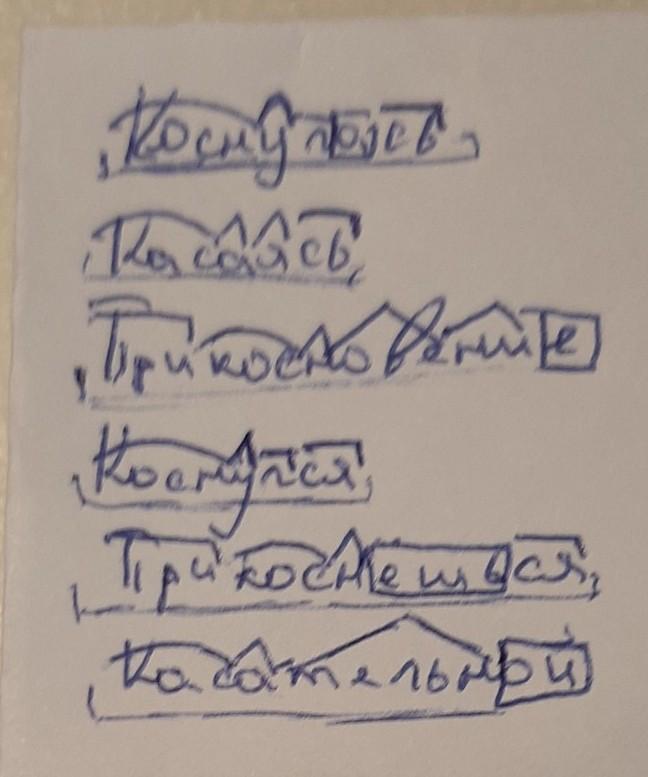 Коснулась
Касаясь
Прикосновение
Коснулся
Прикоснешься
Касательной